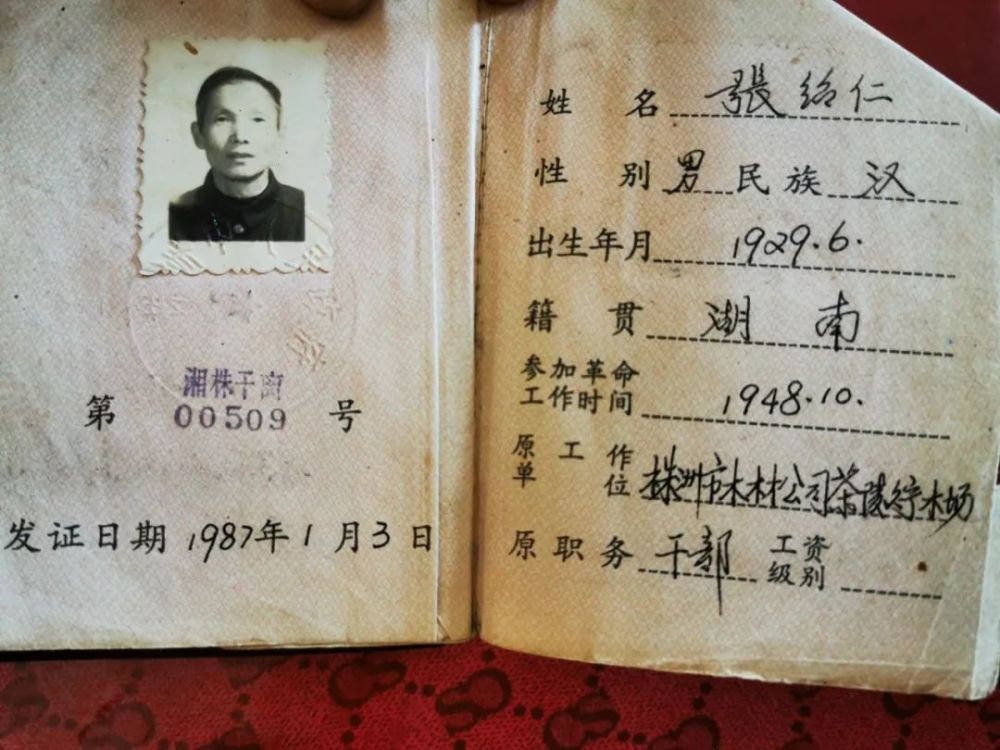 湘株干离
第 00509 号
发证日期 1987年1月3日
姓名 張绍仁
性别 男 民族 汉
出生年月 1929.6.
籍贯 湖南
参加革命
工作时间 1948.10.
原工作
单位 株洲市木材公司茶陵贮木场
原职务 干部 工资
级别